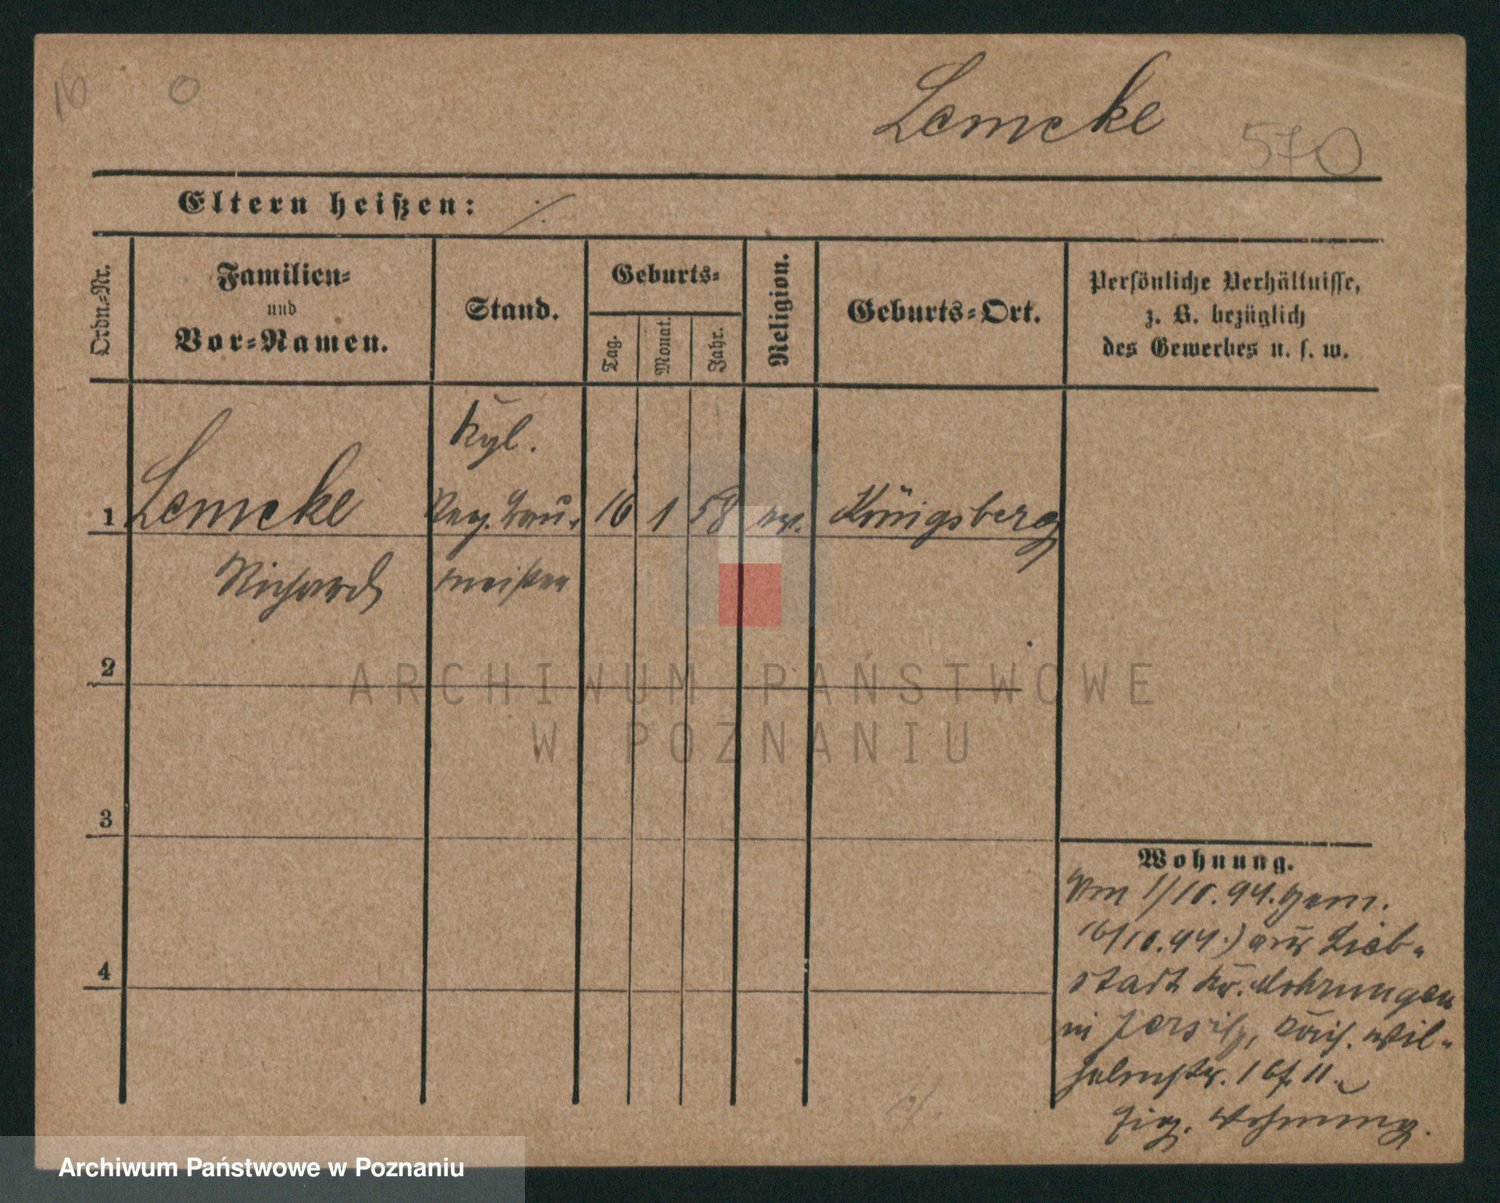 16 0
Lemcke
570
Eltern heißen: ./.
Ordn.-Nr.
Familien-
und
Vor-Namen.
Stand.
Geburts-
Tag.
Monat.
Jahr.
Religion.
Geburts-Ort.
Persönliche Verhältnisse,
z. B. bezüglich
des Gewerbes u. s. w.
Kgl.
1 Lemcke Reg. Bau- 16 1 58 ev. Königsberg
Richard meister
2
3
4
Wohnung.
Vom 1/10.94. gem.
16/10.94.) aus Lieb-
stadt Kr. Mohrungen
in Jersitz, Kais. Wil-
helmstr. 16f II.
Eig. Wohnung.
./.
ARCHIWUM PAŃSTWOWE
W POZNANIU
Archiwum Państwowe w Poznaniu